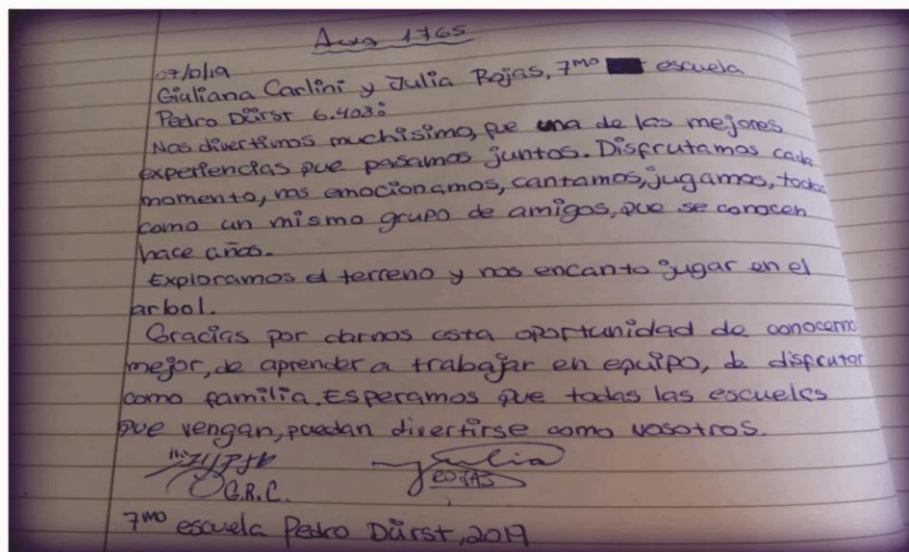 1765
07/0/19
Giuliana Carlini y Julia Rojas, 7mo escuela
Pedro Dürst 6.403:
Nos divertimos muchisimo, fue una de las mejores
experiencias que pasamos juntos. Disfrutamos cada
momento, nos emocionamos, cantamos, jugamos, todos
como un mismo grupo de amigos, que se conocen
hace años.
Exploramos el terreno y nos encanto jugar en el
arbol.
Gracias por darnos esta oportunidad de conocerno
mejor, de aprender a trabajar en equipo, de disfrutar
como familia. Esperamos que todas las escuelas
que vengan, puedan divertirse como nosotros.
G.R.C.
Julia
ROJAS
7mo escuela Pedro Dürst, 2019